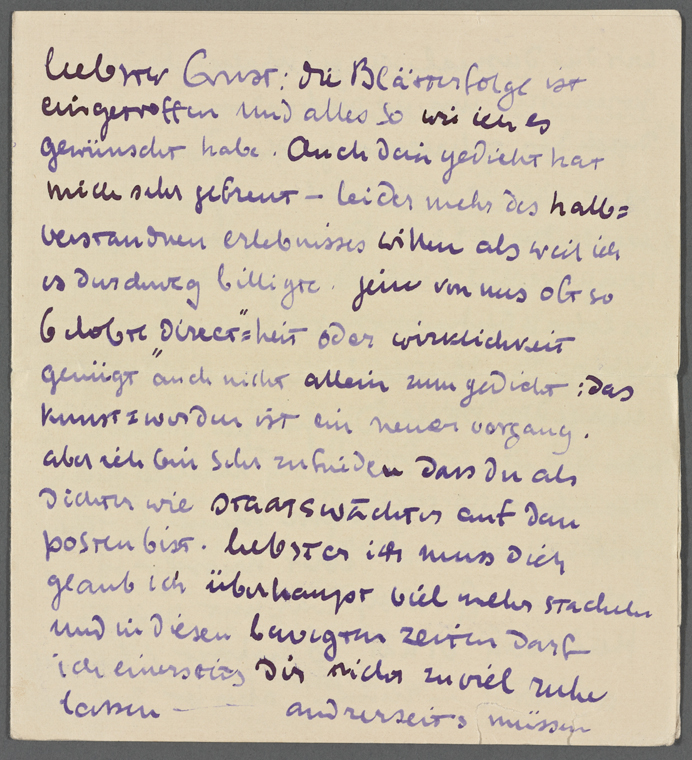 liebster Ernst: die Blätterfolge ist
eingetroffen und alles so wie ich es
gewünscht habe. Auch dein gedicht hat
mich sehr gefreut – leider mehr des halb=
verstandnen erlebnisses willen als weil ich
es durchweg billigte. jene von uns oft so
belobte "Direct"=heit oder wirklichkeit
genügt auch nicht allein zum gedicht: das
kunst=werden ist ein neuer vorgang.
aber ich bin sehr zufrieden dass du als
dichter wie staatswächter auf dem
posten bist. liebster ich muss dich
glaub ich überhaupt viel mehr stacheln
und in diesen bewegten zeiten darf
ich einerseits dir nicht zuviel ruhe
lassen — andrerseits müssen